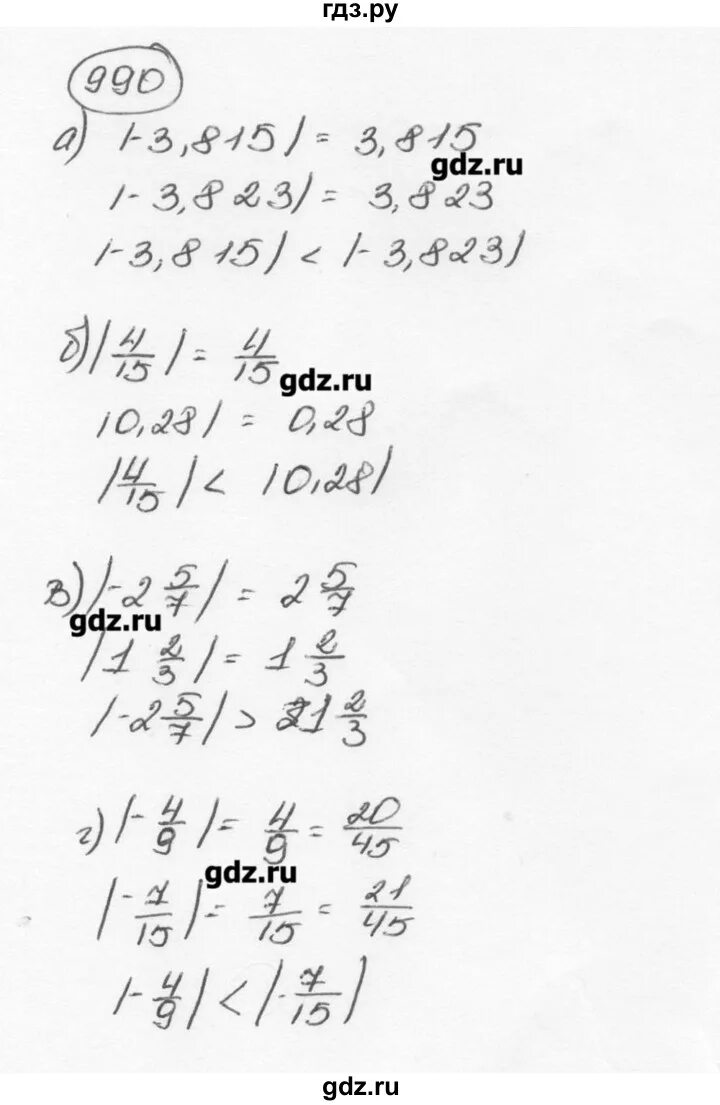 гдз.ру
990
а) |-3,815| = 3,815
gdz.ru
|-3,823| = 3,823
|-3,815| < |-3,823|
б) |4/15| = 4/15
gdz.ru
|0,28| = 0,28
|4/15| < |0,28|
в) |-2 5/7| = 2 5/7
gdz.ru
|1 2/3| = 1 2/3
|-2 5/7| > 1 2/3
г) |-4/9| = 4/9 = 20/45
gdz.ru
|-7/15| = 7/15 = 21/45
|-4/9| < |-7/15|
gdz.ru